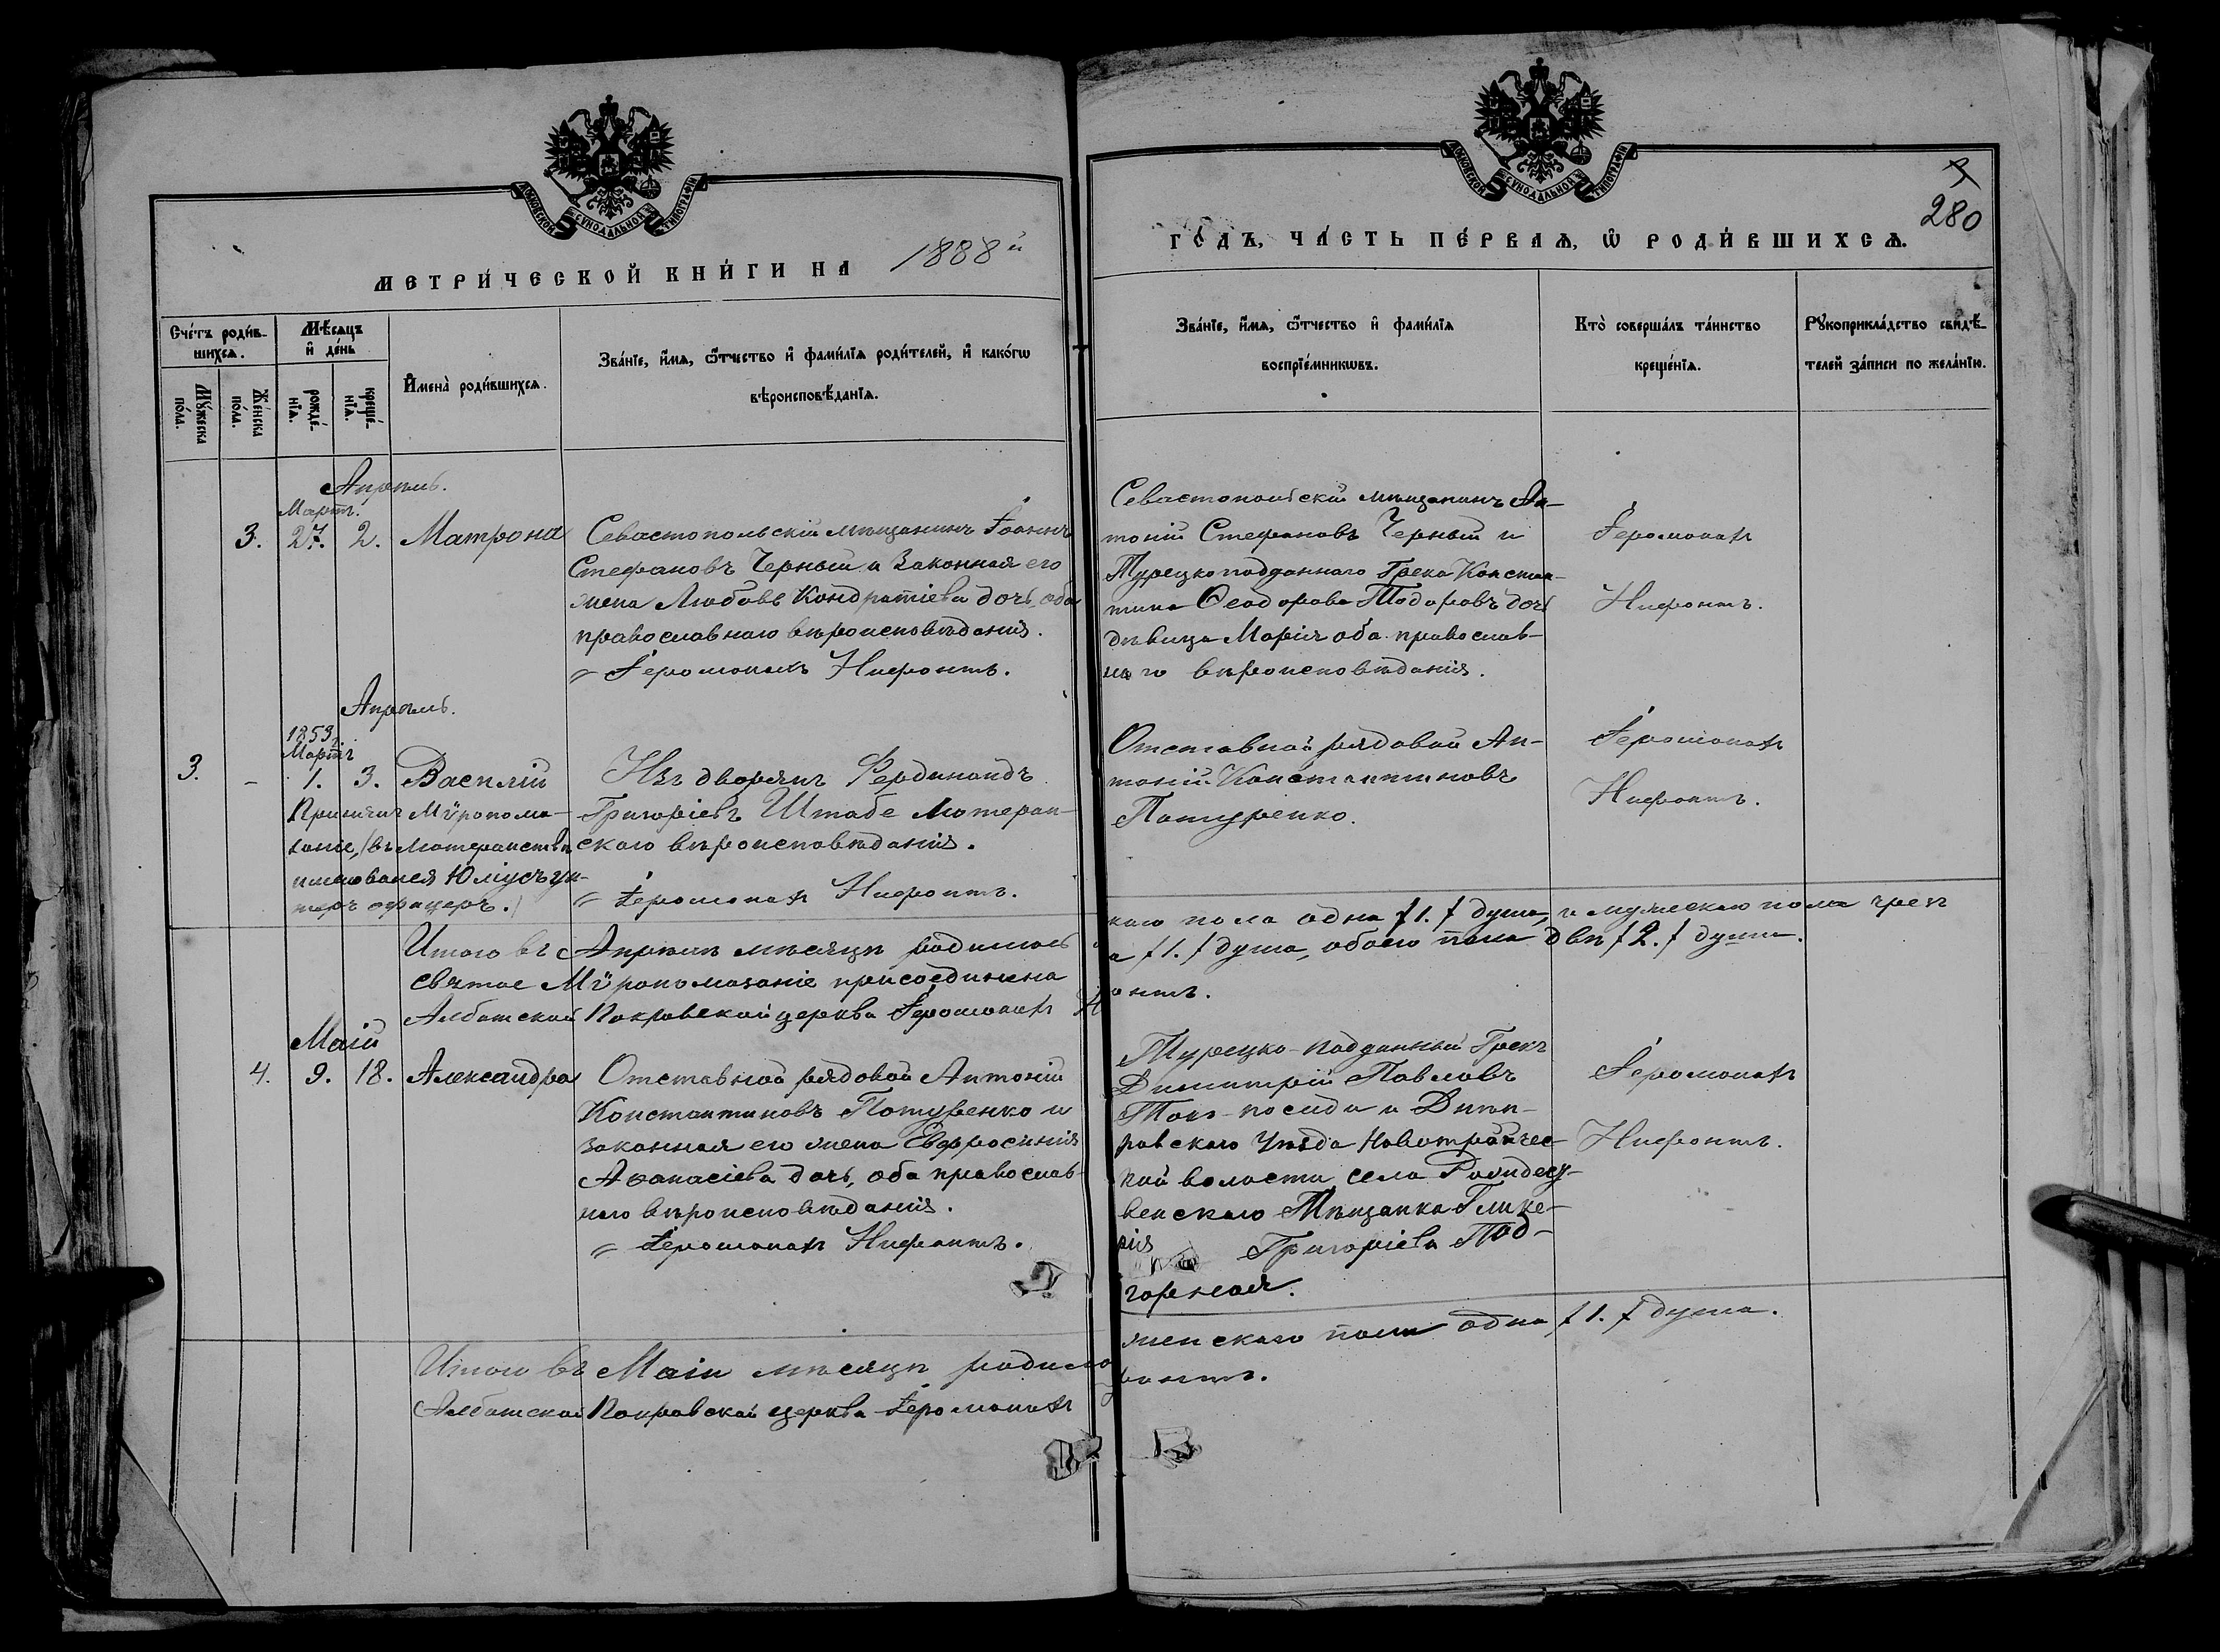 МОСКОВСКОЙ СѴНОДАЛЬНОЙ ТИПОГРАФІИ
МЕТРИ́ЧЕСКОЙ КНИ́ГИ НА 1888й
Сче́тъ роди́в-
шихсѧ.
Мѣ́сѧцъ
и҆ де́нь
Мꙋ́жеска
по́ла.
Же́нска
по́ла.
рожде́-
нїѧ.
креще́-
нїѧ.
И҆мена̀ роди́вшихсѧ.
Зва́нїе, и҆́мѧ, ѻ҆́тчество и҆ фами́лїѧ роди́телей, и҆ како́гѡ
вѣроисповѣ́данїѧ.
Апрѣль.
Мартъ.
3. 27. 2. Матрона
Севастопольскій мѣщанинъ Іоаннъ
Стефановъ Черный и Законная его
жена Любовь Кондратіева дочь, оба
православнаго вѣроисповѣданія.
Іеромонахъ Нифонтъ.
Апрѣль.
1853 г.
Мартъ
3. - 1. 3. Василій
Изъ дворянъ Фердинандъ
Григоріевъ Штабе Лютеран-
скаго вѣроисповѣданія.
Іеромонахъ Нифонтъ.
Принялъ Мѵропома-
заніе, (въ Лютеранствѣ
именовался Юліусъ ун-
теръ офицеръ.)
Итого въ Апрѣлѣ мѣсяцѣ родилось
святое Мѵропомазаніе присоединена
Албатской Покровской церкви Іеромонахъ Н
Маій
4. 9. 18. Александра
Отставной рядовой Антоній
Константиновъ Потуренко и
законная его жена Евфросинія
Аѳанасіева дочь, оба православ-
наго вѣроисповѣданія.
Іеромонахъ Нифонтъ.
Итого въ Маіи мѣсяцѣ родило
Албатской Покровской церкви Іеромонахъ
МОСКОВСКОЙ СѴНОДАЛЬНОЙ ТИПОГРАФІИ
280
ГО́ДЪ, ЧА́СТЬ ПЕ́РВАѦ, Ѡ҆ РОДИ́ВШИХСѦ.
Зва́нїе, и҆́мѧ, ѻ҆́тчество и҆ фами́лїѧ
воспрїе́мникѡвъ.
Кто̀ соверша́лъ та́инство
креще́нїѧ.
Рꙋкоприкла́дство свидѣ́-
телей за́писи по жела́нїю.
Севастопольскій мѣщанинъ Ан-
тоній Стефановъ Черный и
Турецкоподданнаго Грека Констан-
тина Ѳеодорова Тодоровъ дочь
дѣвица Марія оба православ-
наго вѣроисповѣданія.
Іеромонахъ
Нифонтъ.
Отставной рядовой Ан-
тоній Константиновъ
Потуренко.
Іеромонахъ
Нифонтъ.
скаго пола одна /1./ душа, и мужескаго пола чрезъ
а /1./ душа, обоего пола двѣ /2./ души.
онтъ.
Турецко-подданный Грекъ
Димитрій Павловъ
и Днѣп-
ровскаго Уѣзда Новотроичес-
кой волости села
венскаго Мѣщанка Глике-
рія Григоріева Под-
горная.
Іеромонахъ
Нифонтъ.
женскаго пола одна /1./ душа.
онтъ.